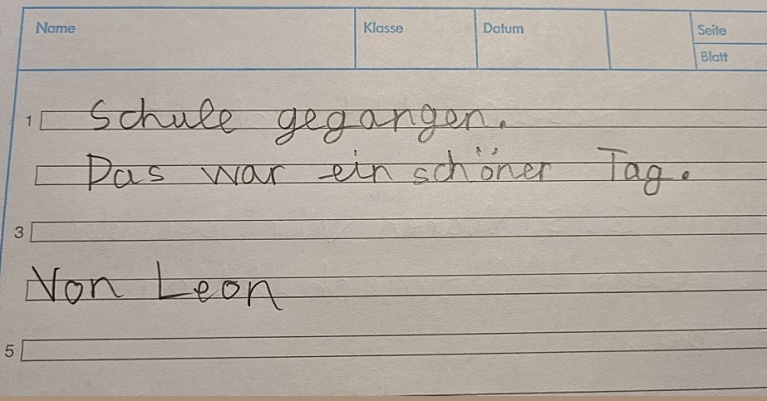 Name Klasse Datum Seite
Blatt
1 Schule gegangen.
Das war ein schöner Tag.
3
Von Leon
5